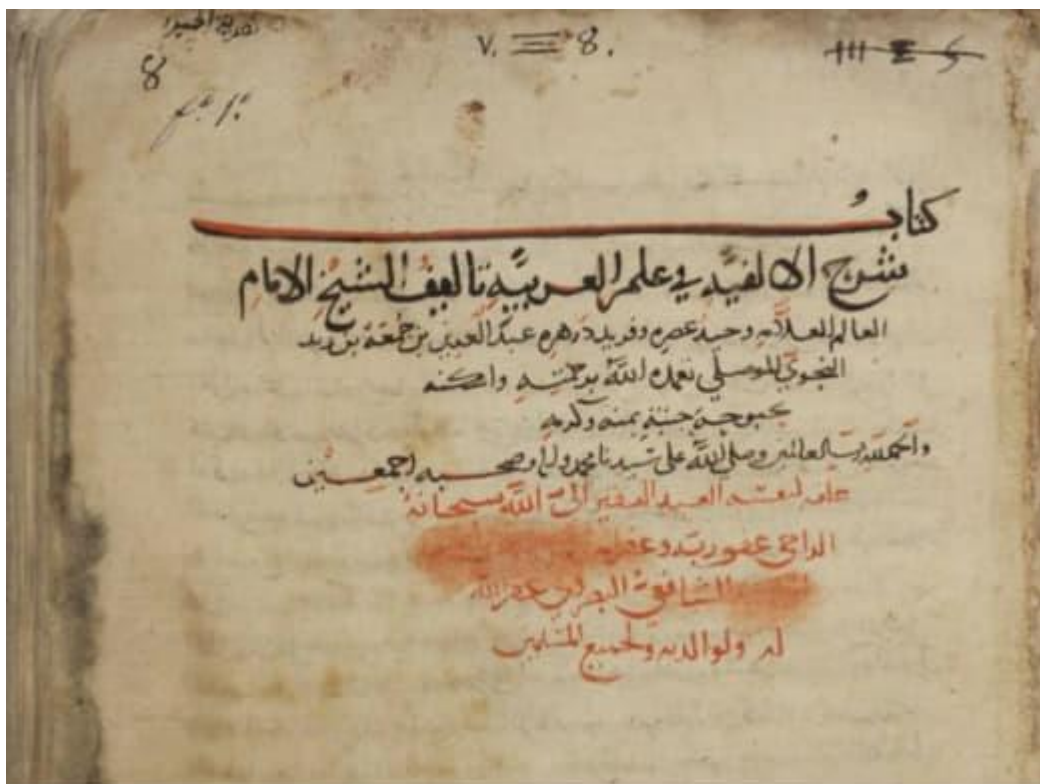 8
٧. 8.
كتاب
شرح الالفيه في علم العربية تاليف الشيخ الامام
العالم العلامه وحيد عصره وفريد دهره عبد العزيز بن جمعة بن زيد
النحوي الموصلي تغمده الله برحمته واسكنه
بحبوحة جنته بمنه وكرمه
والحمد لله رب العالمين وصلى الله على سيدنا محمد واله وصحبه اجمعين
علقه لنفسه العبد الفقير الى الله سبحانه
الراجي عفو ربه وغفرانه
الشافعي غفر الله
له ولوالديه ولجميع المسلمين